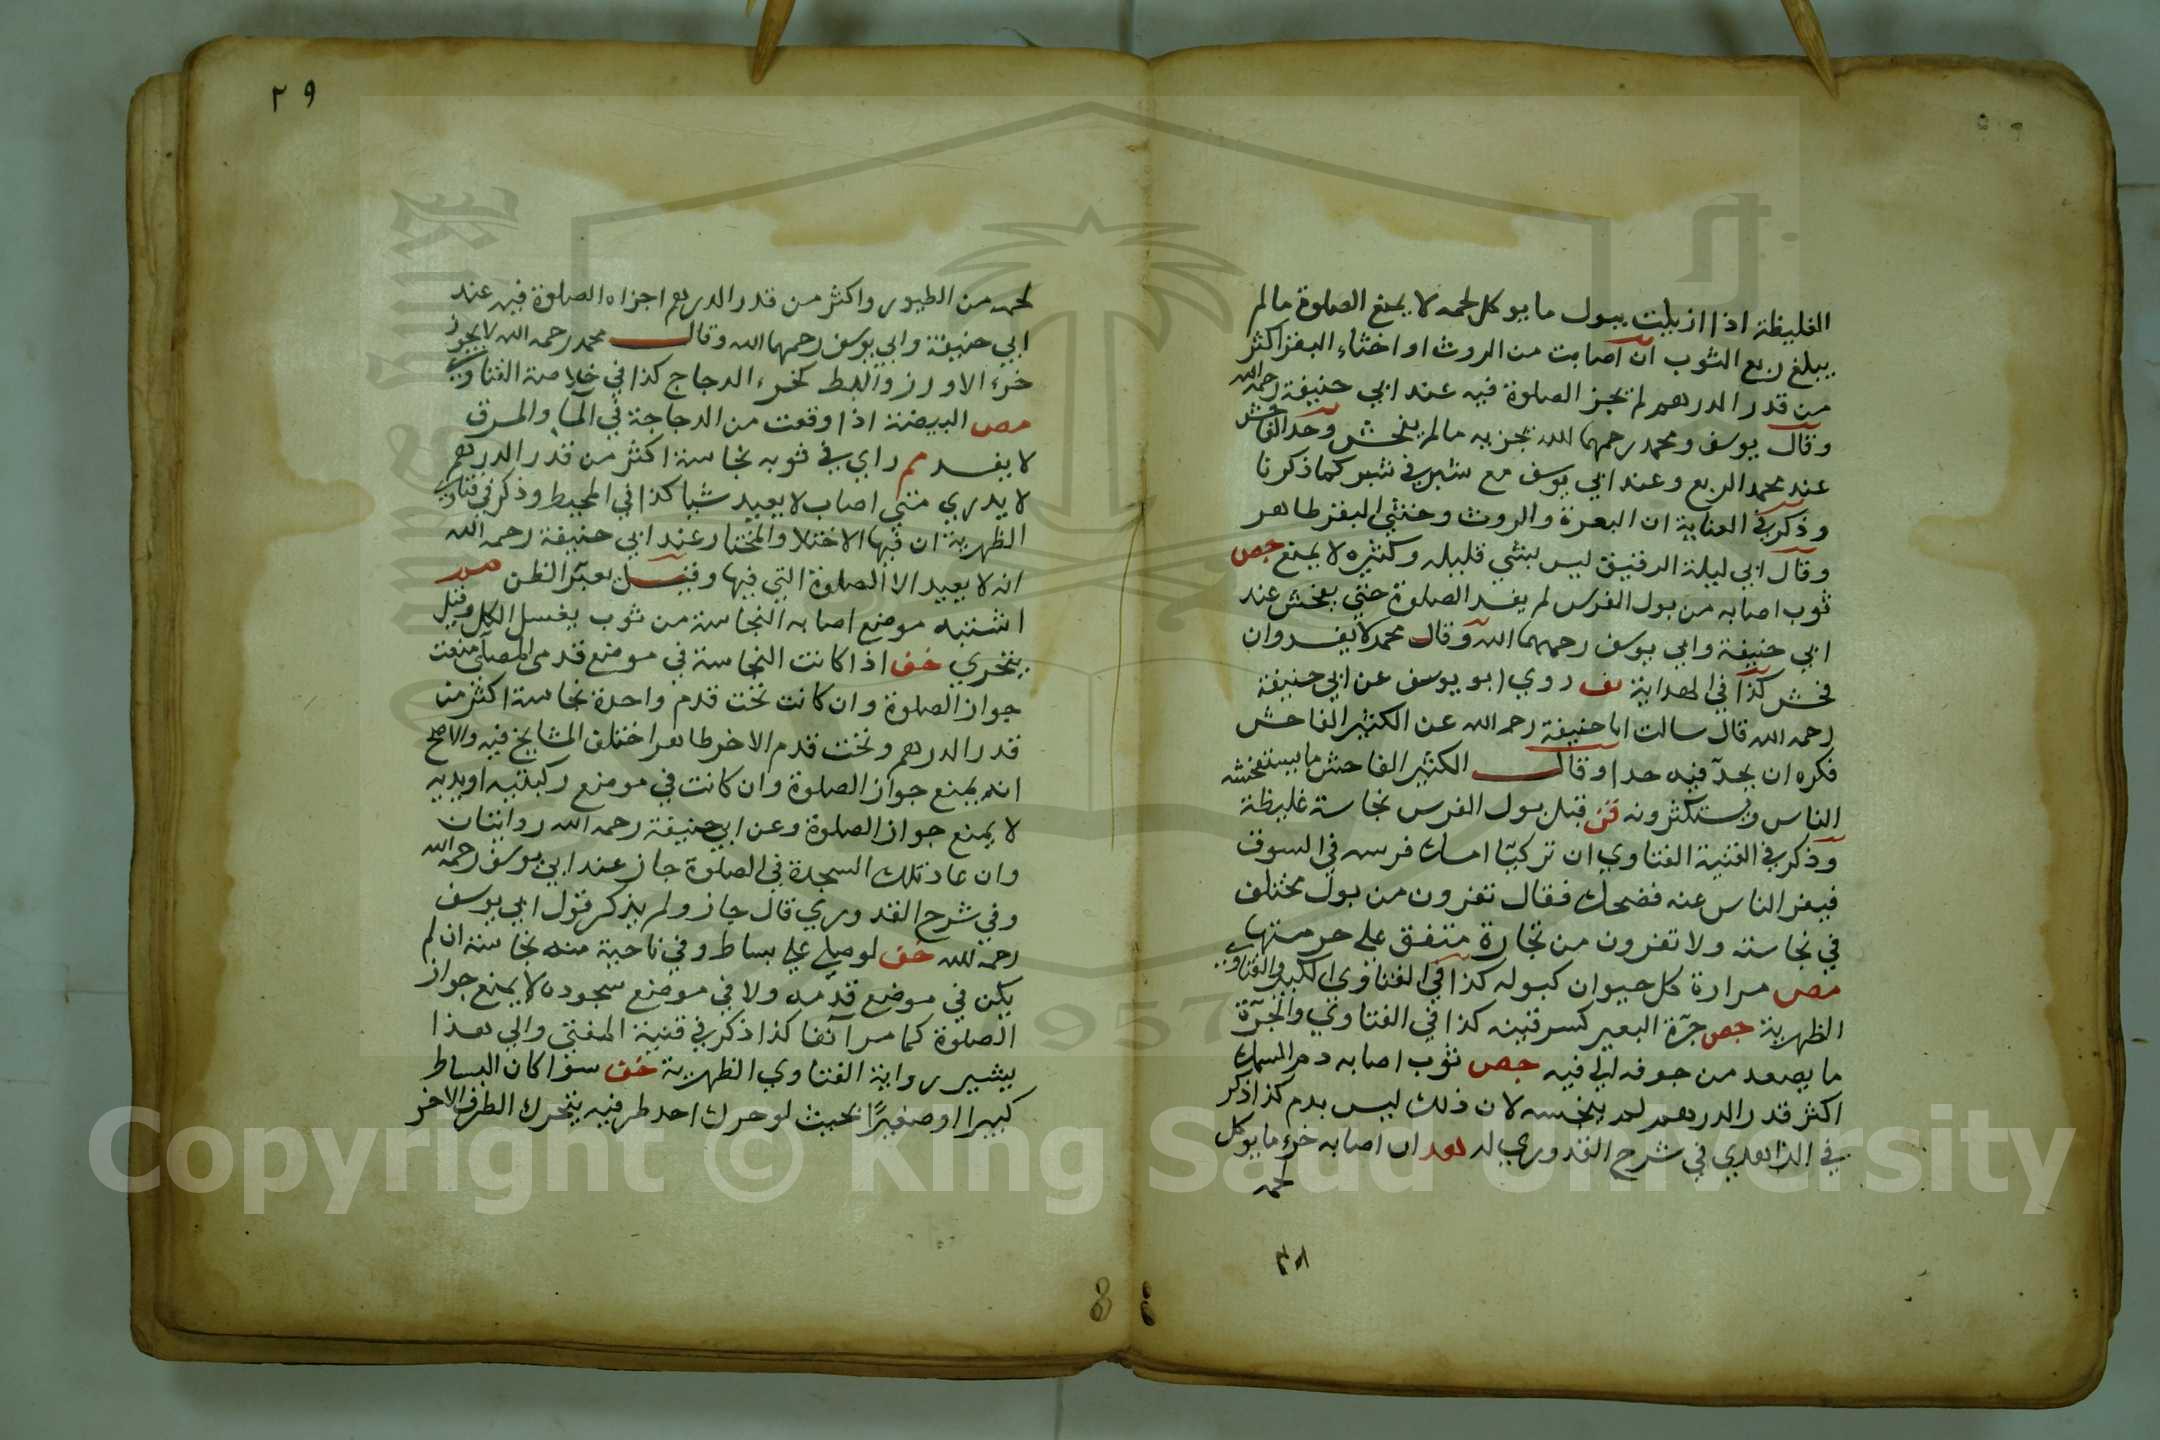 الغليظة اذا ازيلت ببول ما يوكل لحمه لا يمنع الصلوة ما لم
يبلغ ربع الثوب ان اصابت من الروث او اخثاء البقر اكثر
من قدر الدرهم لم تجز الصلوة فيه عند ابي حنيفة رحمه الله
وقال يوسف ومحمد رحمهما الله تجزيه ما لم يفحش وحد الفاحش
عند محمد الربع وعند ابي يوسف مع شبر في شبر كما ذكرنا
وذكر في العتابية ان البعرة والروث وخثي البقر طاهر
وقال ابي ليلة الرقيق ليس بشي قليله وكثيره لا يمنع جص
ثوب اصابه من بول الفرس لم يفسد الصلوة حتي يفحش عند
ابي حنيفة وابي يوسف رحمهما الله وقال محمد لا يفسد وان
فحش كذا في الهداية روي ابو يوسف عن ابي حنيفة
رحمه الله قال سالت ابا حنيفة رحمه الله عن الكثير الفاحش
فكره ان يحد فيه حدا وقال الكثير الفاحش ما يستفحشه
الناس ويستكثرونه قن قيل بول الفرس نجاسة غليظة
وذكر في الفتاوي ان تركيا امسك فرسه في السوق
فيفر الناس عنه فضحك فقال تفرون من بول مختلف
في نجاسته ولا تفرون من تجارة متفق علي حرمتها
مص مرارة كل حيوان كبوله كذا في الفتاوي الكبري والفتاوي
الظهرية جص جرة البعير كسرقينه كذا في الفتاوي والجرة
ما يصعد من جوفه الي فيه جص ثوب اصابه دم السمك
اكثر قدر الدرهم لم ينجسه لان ذلك ليس بدم كذا ذكر
في الزاهدي في شرح القدوري له ان اصابه خرء ما يوكل
لحمه
٢٩
لحمه من الطيور واكثر من قدر الدرهم اجزاه الصلوة فيه عند
ابي حنيفة وابي يوسف رحمهما الله وقال محمد رحمه الله لا يجوز
خرء الاورز والبط كخرء الدجاج كذا في خلاصة الفتاوي
مص البيضة اذا وقعت من الدجاجة في الماء والمرق
لا يفسد مم راي في ثوبه نجاسة اكثر من قدر الدرهم
لا يدري متي اصاب لا يعيد شيا كذا في المحيط وذكر في فتاوي
الظهرية ان فيها الاختلا والمختار عند ابي حنيفة رحمه الله
انه لا يعيد الا الصلوة التي فيها وقيل يعتبر الظن
اشتبه موضع اصابه النجاسة من ثوب يغسل الكل وقيل
يتحري خف اذا كانت النجاسة في موضع قدمي المصلي منعت
جواز الصلوة وان كانت تحت قدم واحدة نجاسة اكثر من
قدر الدرهم وتحت قدم الاخر طاهر اختلف المشايخ فيه والاصح
انه يمنع جواز الصلوة وان كانت في موضع ركبتيه او يديه
لا يمنع جواز الصلوة وعن ابي حنيفة رحمه الله روايتان
وان عاد تلك السجدة في الصلوة جاز عند ابي يوسف رحمه الله
وفي شرح القدوري قال جاز ولم يذكر قول ابي يوسف
رحمه الله خف لو صلي علي بساط وفي ناحية منه نجاسته ان لم
يكن في موضع قدمه ولا في موضع سجوده لا يمنع جواز
الصلوة كما مر آنفا كذا ذكر في قنية المفتي والي هذا
يشير رواية الفتاوي الظهرية خف سوا كان البساط
كبيرا او صغيرًا بحيث لو حرك احد طرفيه يتحرك الطرف الاخر
Copyright © King Saud University
1957